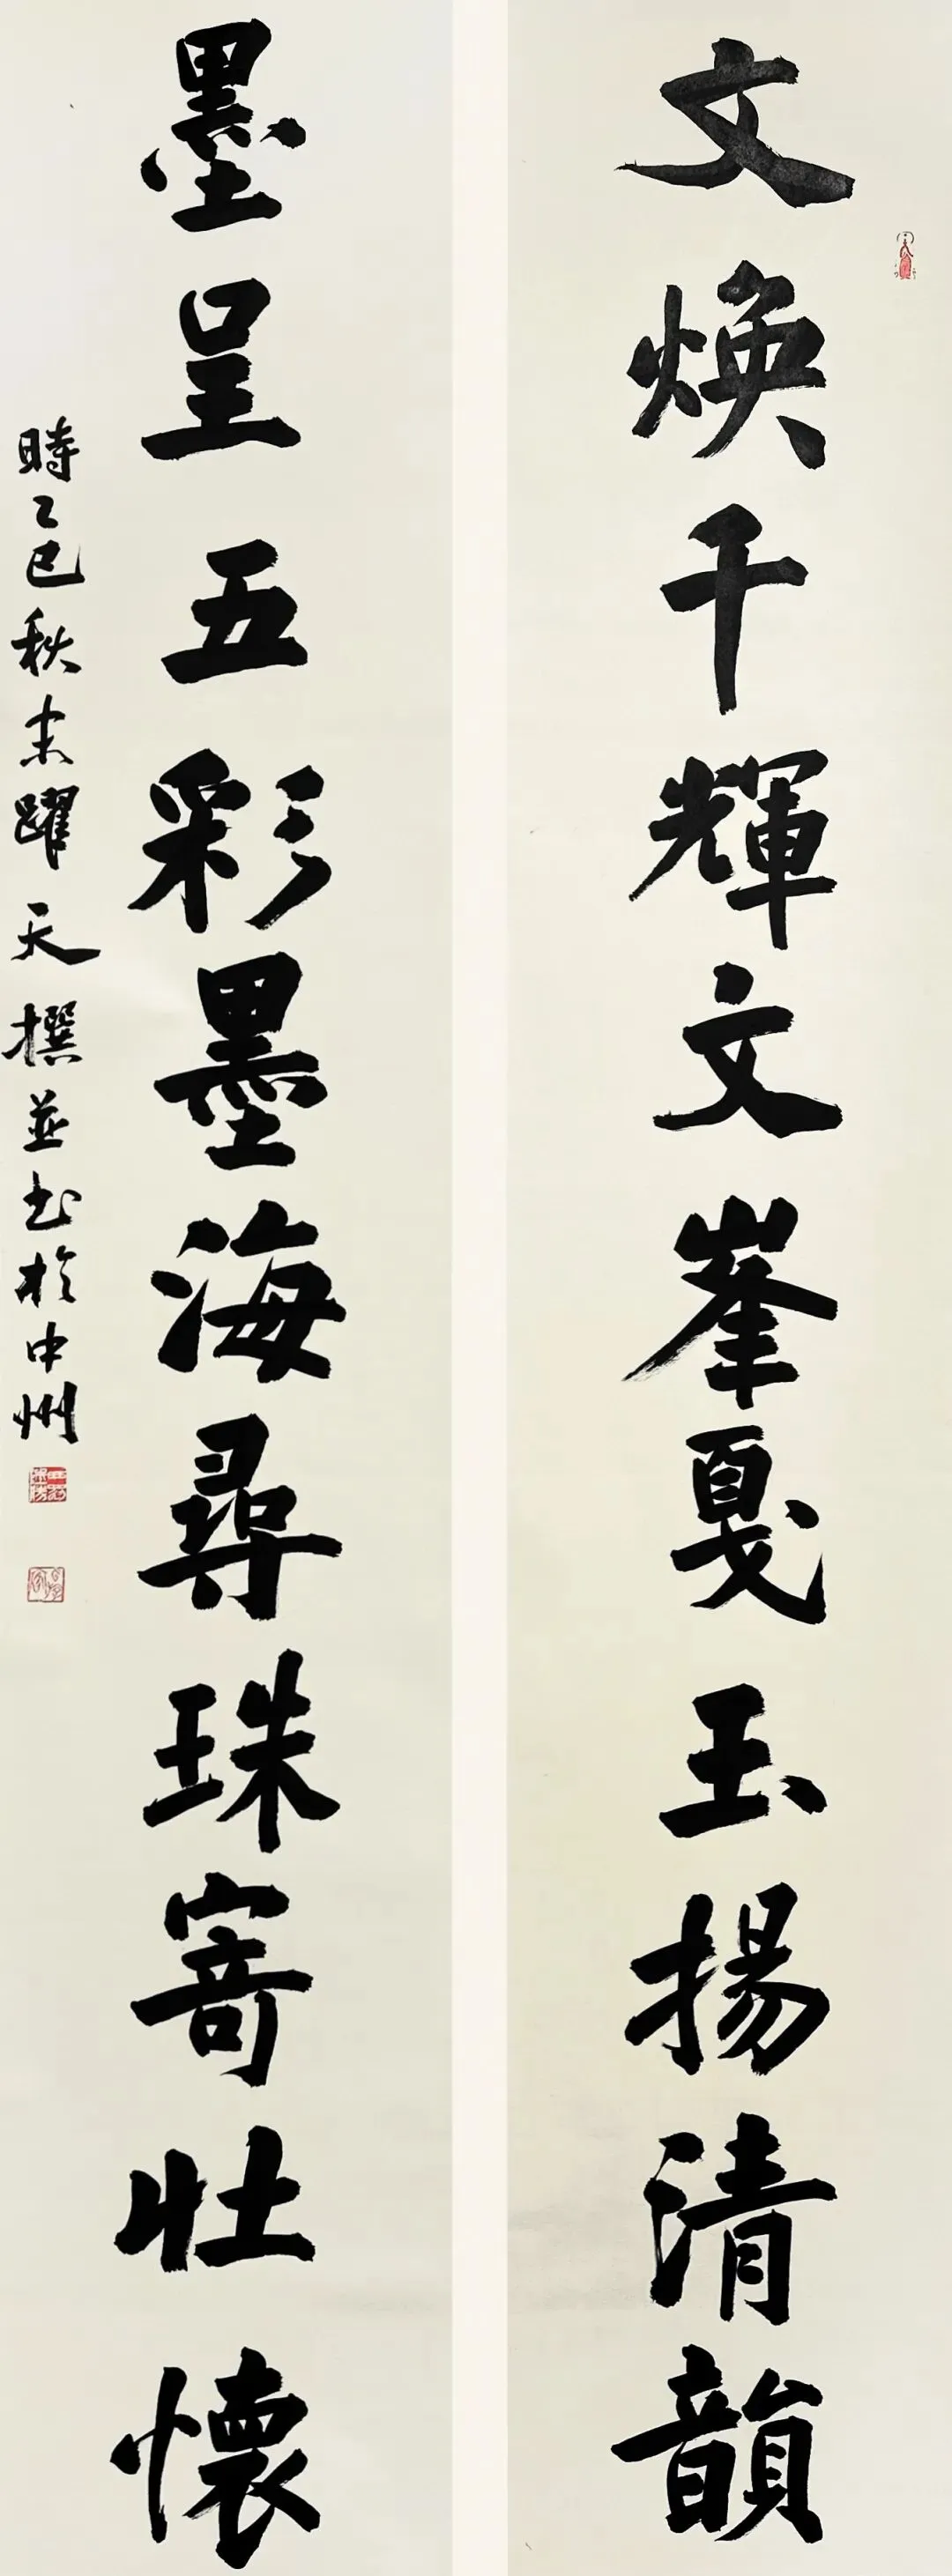 文焕千輝文峯戛玉揚清韻
墨呈五彩墨海尋珠寄壯懷
時乙巳秋末躍天撰並书於中州